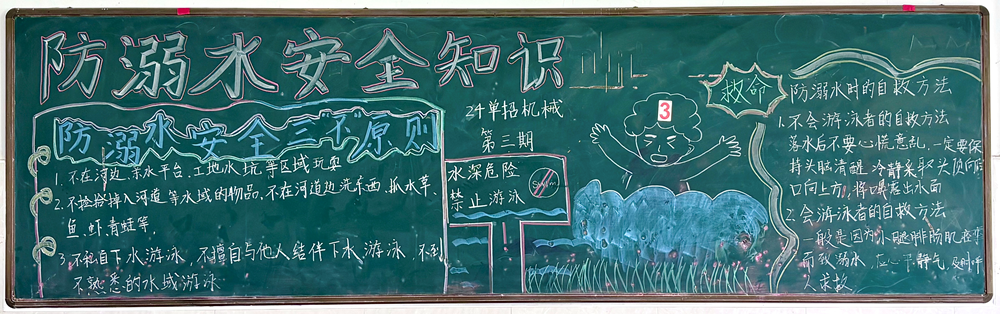 防溺水安全知识
24单招机械
第三期
防溺水安全三"不"原则
1. 不在河边、亲水平台、工地水坑等区域玩耍
2. 不捡拾掉入河道等水域的物品,不在河道边洗东西、抓水草、
鱼、虾、青蛙等.
3 不私自下水游泳 不擅自与他人结伴下水游泳 不到
不熟悉的水域游泳
水深危险
禁止游泳
Swim
3
救命
防溺水时的自救方法
1. 不会游泳者的自救方法
落水后不要心慌意乱,一定要保
持头脑清醒 冷静采取头顶向后
口向上方,将嘴鼻露出水面
2. 会游泳者的自救方法
一般是因为小腿腓肠肌
而致溺水, 静气,及时呼
人求救